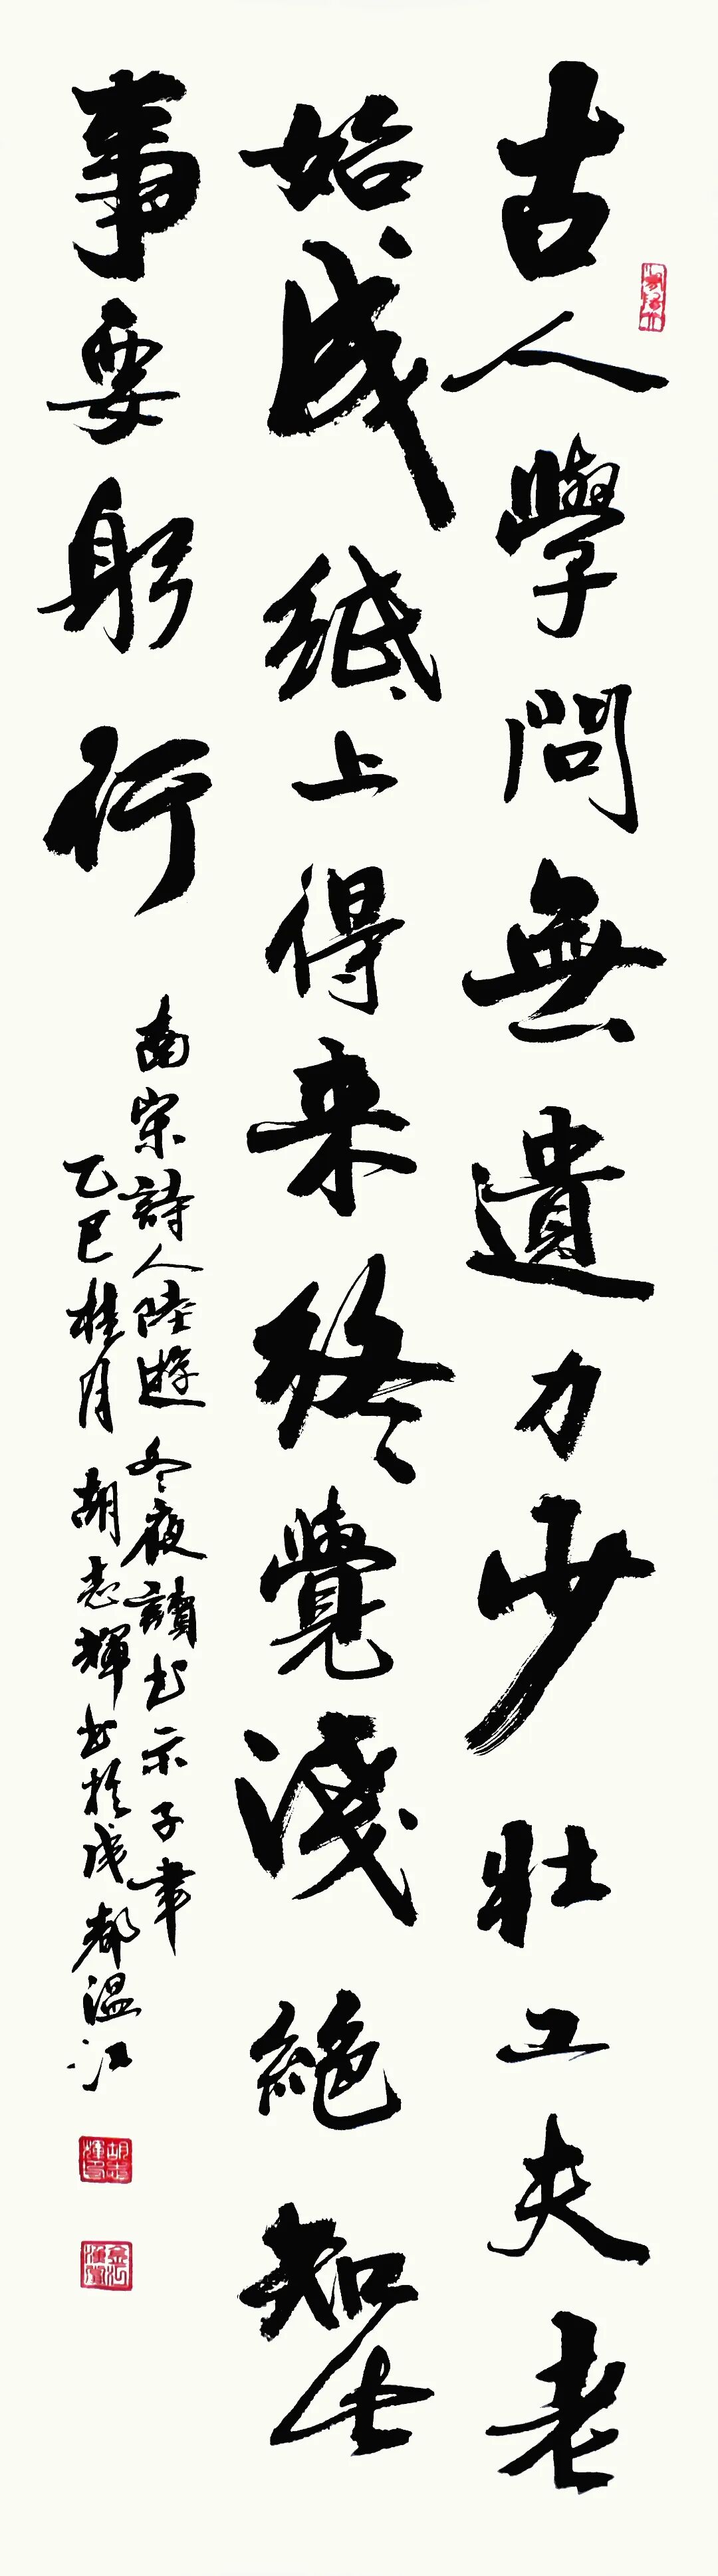 古人學問無遺力少壯工夫老
始成紙上得来終覺淺絕知此
事要躬行
南宋詩人陸遊冬夜讀书示子聿
乙巳桂月胡志輝书於成都溫江
胡志輝印